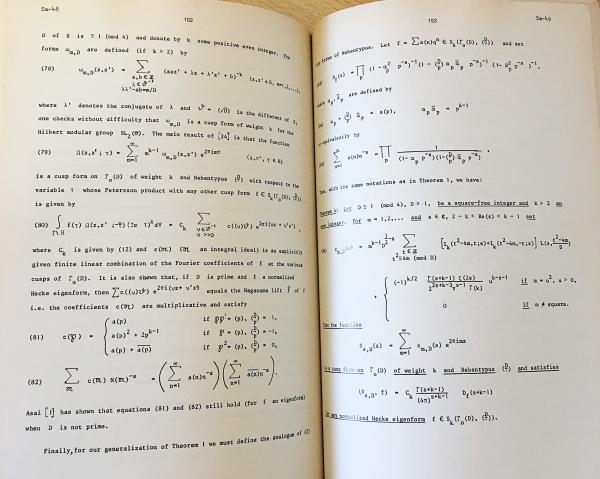 Za-48
152
D of K is ≡ 1 (mod 4) and denote by k some positive even integer. The
forms ω_{m,D} are defined (if k > 2) by
(78) ω_{m,D}(z,z') = Σ_{a,b∈ℤ, λ∈𝔡^{-1}, λλ'-ab=m/D} (azz' + λz + λ'z' + b)^{-k} (z,z'∈ℌ, m=0,1,...),
where λ' denotes the conjugate of λ and 𝔡 = (√D) is the different of K,
one checks without difficulty that ω_{m,D} is a cusp form of weight k for the
Hilbert modular group SL_2(𝒪). The main result of [24] is that the function
(79) Ω(z,z';τ) = Σ_{m=1}^{∞} m^{k-1} ω_{m,D}(z,z') e^{2πimτ} (z,z',τ ∈ ℌ)
is a cusp form on Γ_0(D) of weight k and Nebentypus (D/p) with respect to the
variable τ whose Petersson product with any other cusp form f ∈ S_k(Γ_0(D), (D/·))
is given by
(80) ∫_{Γ\ℌ} f(τ) Ω(z,z';-τ̄) (Im τ)^k dV = C_k Σ_{ν∈𝔡^{-1}, ν>>0} c((ν)𝔡) e^{2πi(νz + ν'z')},
where C_k is given by (12) and c(𝔪) (𝔪 an integral ideal) is an explicitly
given finite linear combination of the Fourier coefficients of f at the various
cusps of Γ_0(D). It is also shown that, if D is prime and f a normalised
Hecke eigenform, then Σc((ν)𝔡) e^{2πi(νz + ν'z')} equals the Naganuma lift f̂ of f
i.e. the coefficients c(𝔪) are multiplicative and satisfy
(81) c(𝔭) = { a(p) if 𝔭𝔭' = (p), (D/p) = 1,
a(p)² + 2p^{k-1} if 𝔭 = (p), (D/p) = -1,
a(p) + \overline{a(p)} if 𝔭² = (p), (D/p) = 0,
(82) Σ_{𝔪} c(𝔪) N(𝔪)^{-s} = ( Σ_{n=1}^{∞} a(n)n^{-s} ) ( Σ_{n=1}^{∞} \overline{a(n)}n^{-s} ).
Asai [1] has shown that equations (81) and (82) still hold (for f an eigenform)
when D is not prime.
Finally, for our generalization of Theorem 1 we must define the analogue of (2)
153
Za-49
for forms of Nebentypus. Let f = Σa(n)q^n ∈ S_k(Γ_0(D), (D/·)) and set
D_f(s) = Π_p (1 - α_p² p^{-s})^{-1} (1 - (D/p) α_p ᾱ_p p^{-s})^{-1} (1 - ᾱ_p² p^{-s})^{-1},
where α_p, ᾱ_p are defined by
α_p + (D/p) ᾱ_p = a(p), α_p ᾱ_p = p^{k-1}
equivalently by
Σ_{n=1}^{∞} a(n)n^{-s} = Π_p 1/((1-α_p p^{-s})(1-(D/p) ᾱ_p p^{-s})).
with the same notations as in Theorem 1, we have:
Theorem 4: Let D ≡ 1 (mod 4), D > 1, be a square-free integer and k > 2 an
even integer. For m = 1,2,... and s ∈ ℂ, 2 - k < Re(s) < k - 1 set
c_{m,D}(s) = m^{k-1} Σ_{t∈ℤ, t²≡4m (mod D)} [I_k(t²-4m,t;s)+I_k(t²-4m,-t;s)] L(s, (t²-4m)/D)
+ { (-1)^{k/2} Γ(s+k-1) ζ(2s) / (2^{2s+k-3} π^{s-1} Γ(k)) u^{k-s-1} if m = u², u > 0,
0 if m ≠ square.
Then the function
Φ_{s,D}(z) = Σ_{m=1}^{∞} c_{m,D}(s) e^{2πimz}
is a cusp form on Γ_0(D) of weight k and Nebentypus (D/·) and satisfies
(Φ_{s,D}, f) = C_k Γ(s+k-1)/(4π)^{s+k-1} D_f(s+k-1)
for any normalized Hecke eigenform f ∈ S_k(Γ_0(D), (D/·)).